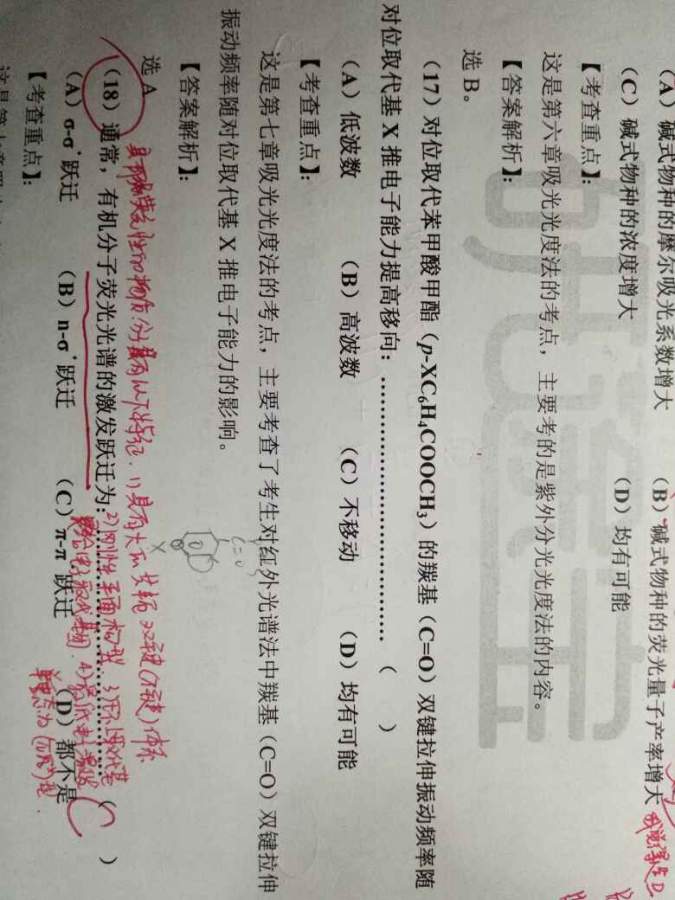 （A）碱式物种的摩尔吸光系数增大 （B）碱式物种的荧光量子产率增大
（C）碱式物种的浓度增大 （D）均有可能
【考查重点】：
这是第六章吸光光度法的考点，主要考的是紫外分光光度法的内容。
【答案解析】：
选 B。
（17）对位取代苯甲酸甲酯（p-XC₆H₄COOCH₃）的羰基（C=O）双键拉伸振动频率随
对位取代基 X 推电子能力提高移向：……………………………………（ ）
（A）低波数 （B）高波数 （C）不移动 （D）均有可能
【考查重点】：
这是第七章吸光光度法的考点，主要考查了考生对红外光谱法中羰基（C=O）双键拉伸
振动频率随对位取代基 X 推电子能力的影响。
【答案解析】：
选 A
C=O
X
具有强荧光性的物质分子具有以下特征：1）具有大π共轭双键（π键）体系
2）刚性平面构型 3）
4）
（18）通常，有机分子荧光光谱的激发跃迁为：……………………（ ）
C
（A）σ-σ*跃迁 （B）n-σ*跃迁 （C）π-π*跃迁 （D）都不是
【考查重点】：